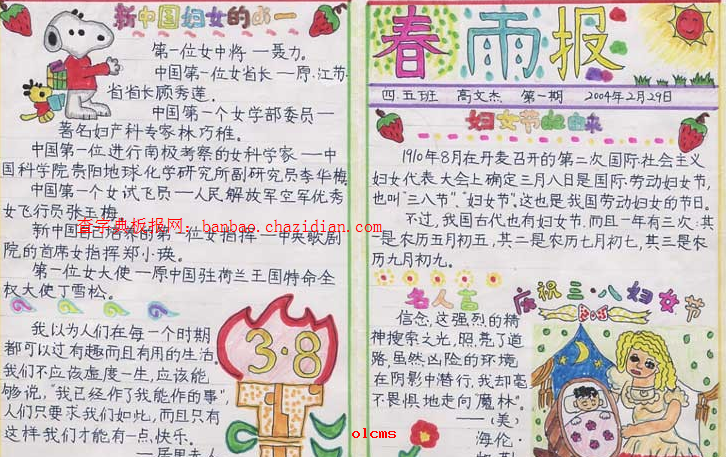 新中国妇女的第一
第一位女中将——聂力。
中国第一位女省长——原·江苏
省省长顾秀莲。
中国第一个女学部委员——
著名妇产科专家林巧稚。
中国第一位进行南极考察的女科学家——中
国科学院贵阳地球化学研究所副研究员李华梅
中国第一个女试飞员——人民解放军空军优秀
女飞行员张玉梅
新中国自己培养的第一位女指挥——中央歌剧
院的首席女指挥郑小瑛。
第一位女大使——原中国驻荷兰王国特命全
权大使丁雪松。
我以为人们在每一个时期
都可以过有趣而且有用的生活。
我们不应该虚度一生,应该能
够说,"我已经作了我能作的事",
人们只要求我们如此,而且只有
这样我们才能有一点快乐。
——居里夫人
3·8
春雨报
四.五班 高文杰 第一期 2004年2月29日
妇女节的由来
1910年8月在丹麦召开的第二次国际社会主义
妇女代表大会上确定三月八日是国际劳动妇女节,
也叫"三八节"."妇女节"。这也是我国劳动妇女的节日。
不过,我国古代也有妇女节,而且一年有三次:其
一是农历五月初五,其二是农历七月初七,其三是农
历九月初九。
名人言
信念,这强烈的精
神搜索之光,照亮了道
路,虽然凶险的环境
在阴影中潜行,我却毫
不畏惧地走向魔林"。
——(美)
海伦·
庆祝三·八妇女节
查字典板报网:banbao.chazidian.com
olcms